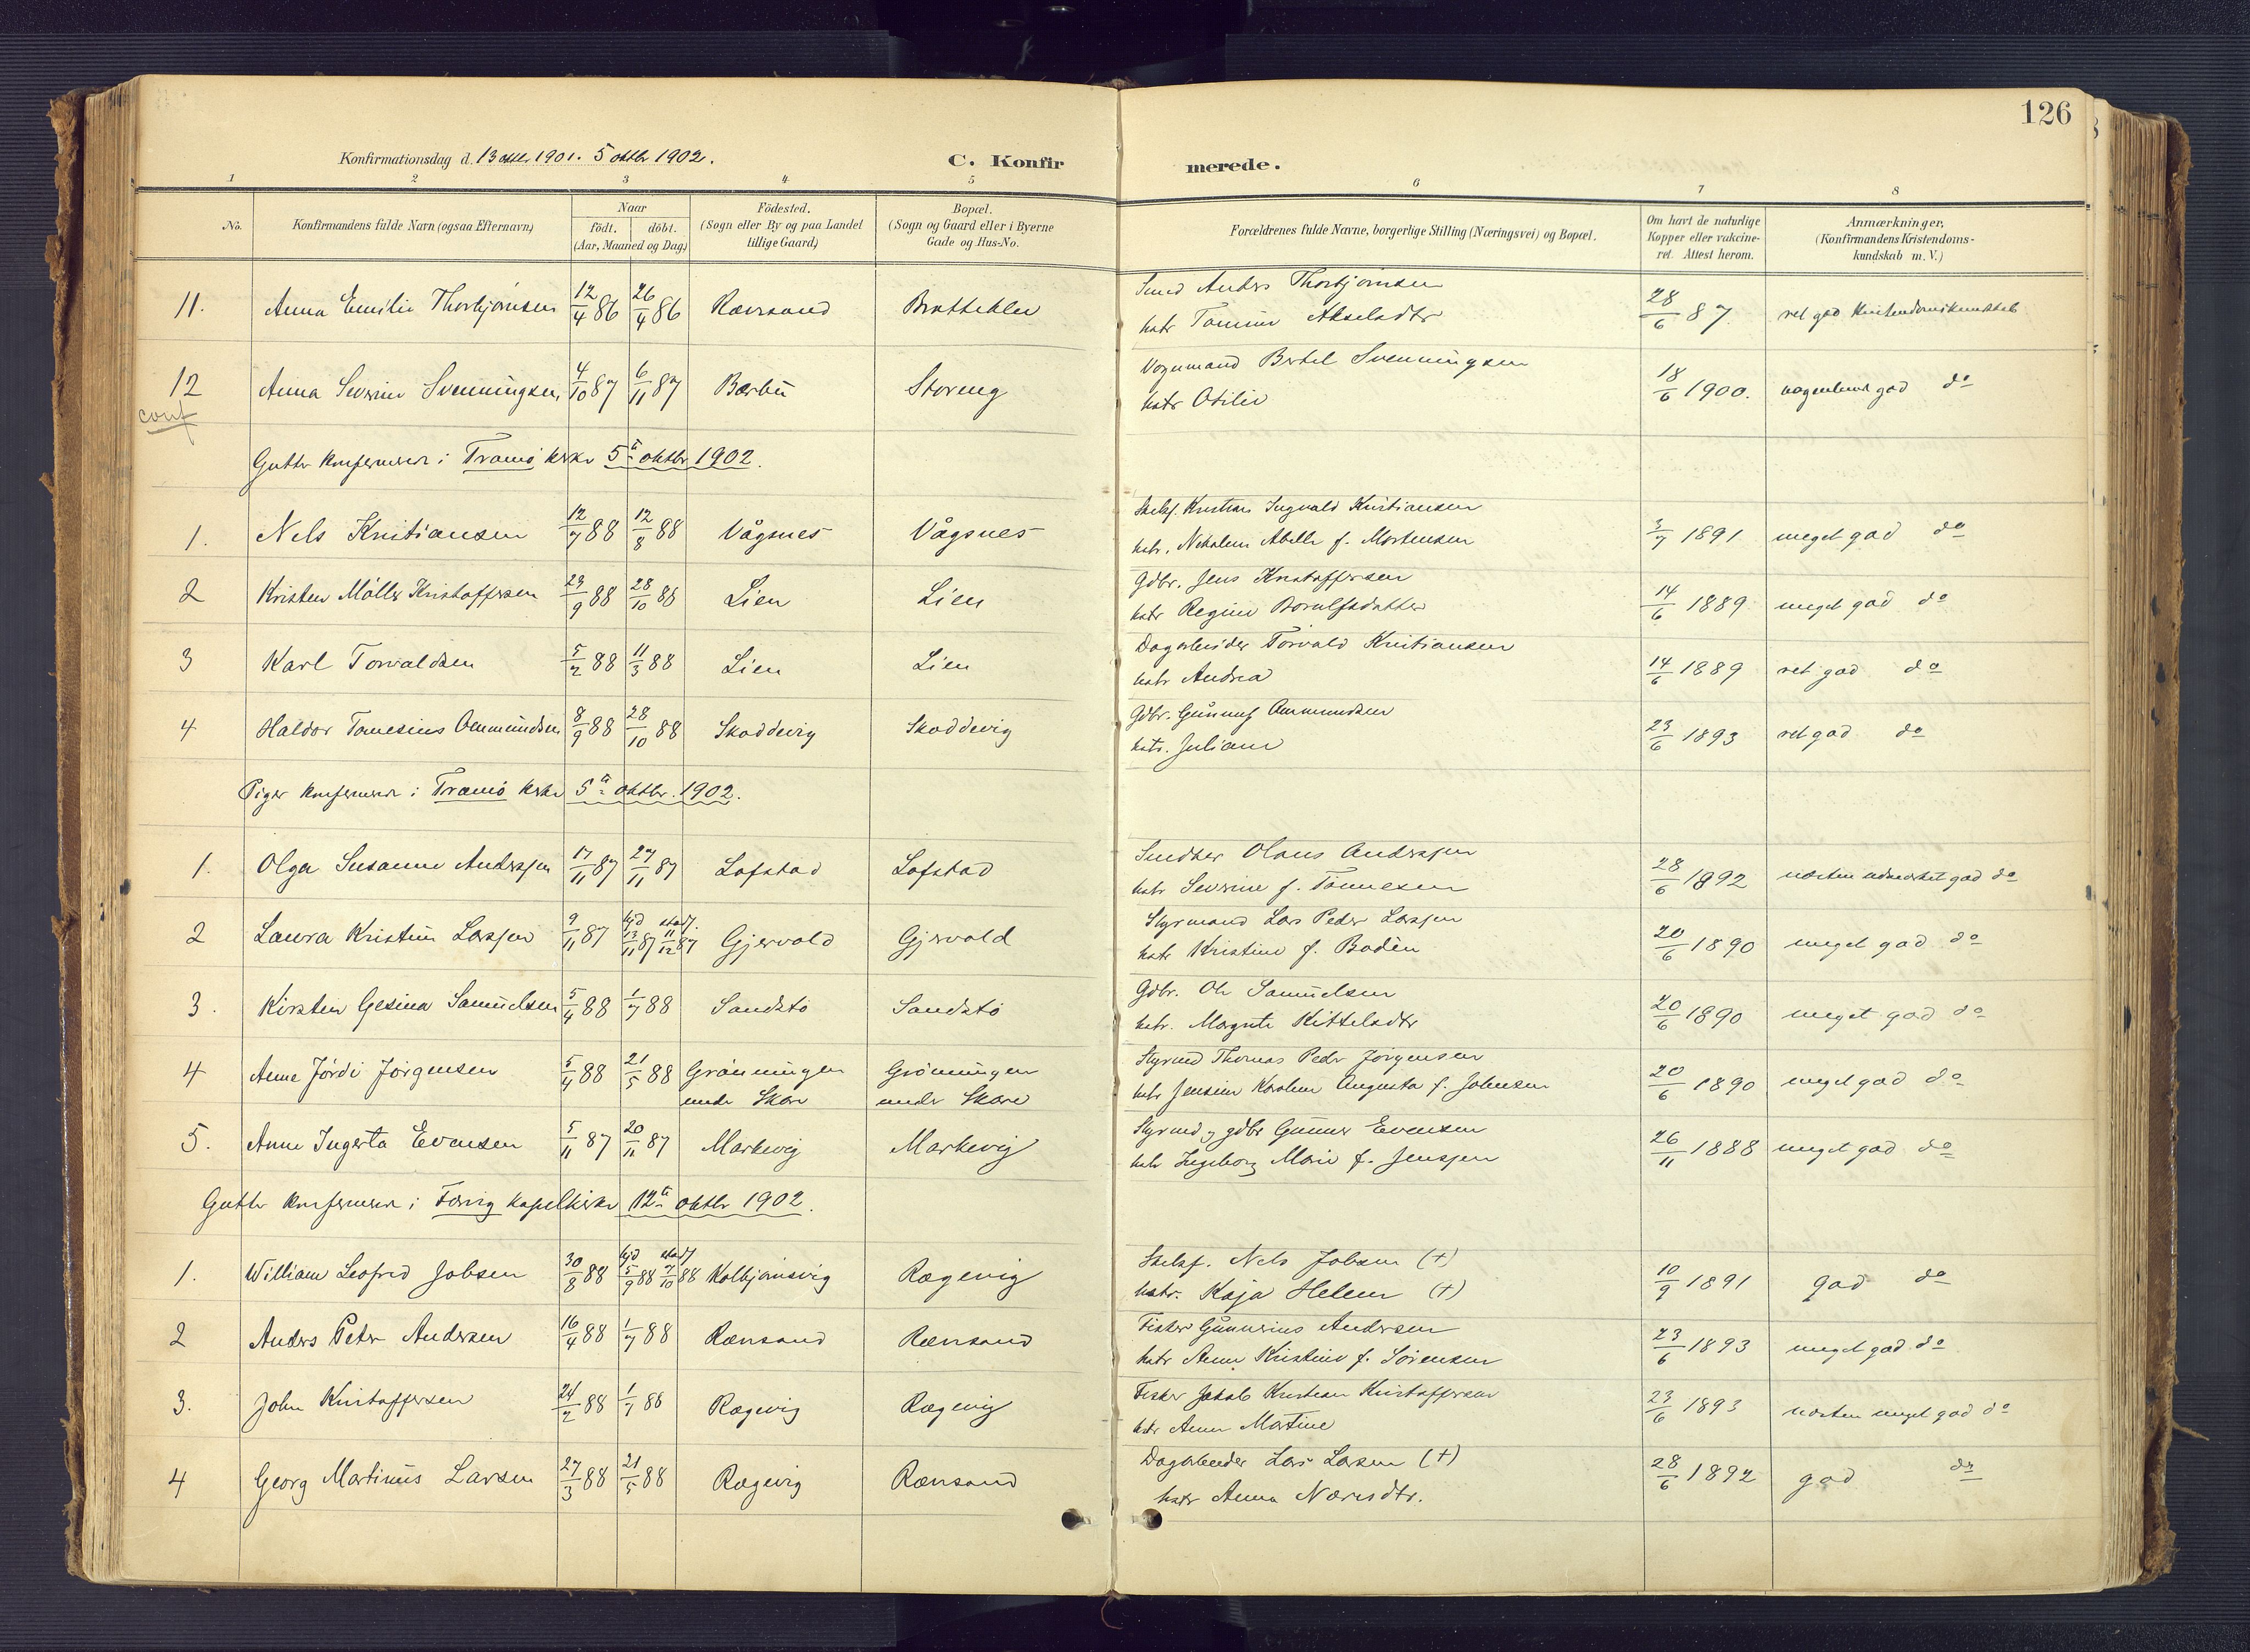 126
Konfirmationsdag d. 13 oktbr 1901. 5 oktbr 1902.
C. Konfirmerede.
1 2 3 4 5 6 7 8
No.
Konfirmandens fulde Navn (ogsaa Efternavn)
Naar
födt. döbt.
(Aar, Maaned og Dag)
Födested.
(Sogn eller By og paa Landet
tillige Gaard)
Bopæl.
(Sogn og Gaard eller i Byerne
Gade og Hus-No.
Forældrenes fulde Navne, borgerlige Stilling (Næringsvei) og Bopæl.
Om havt de naturlige
Kopper eller vakcine-
ret. Attest herom.
Anmærkninger,
(Konfirmandens Kristendoms-
kundskab m. V.)
11. Anna Emilie Thorbjørnsen 12/4 86 26/4 86 Rævesand Brattekleiv
Smed Anders Thorbjørnsen
hstr Tomine Akseldtr
28/6 87. ret god Kristendomskundskab
12 Anna Severine Svenningsen 4/10 87 6/11 87 Barbu Storeng
conf
Vognmand Bertel Svenningsen
hstr Otilie
18/6 1900. nogenlunde god do
Gutter konfirmerede i Tromö kirke 5te oktbr 1902.
1. Nels Kristiansen 12/7 88 12/8 88 Vågsnes Vågsnes
Skibsf. Kristian Ingvald Kristiansen
hstr. Nikoline Abelle f. Mortensen
3/7 1891 meget god do
2 Kristen Möller Kristoffersen 23/9 88 28/10 88 Lien Lien
Gdbr. Jens Kristoffersen
hstr Regine Borulfsdatter
14/6 1889 meget god do
3 Karl Torvaldsen 5/2 88 11/3 88 Lien Lien
Dagarbeider Torvald Kristiansen
hstr Andrea
14/6 1889 ret god do
4 Haldor Tomesius Ommundsen 8/9 88 28/10 88 Skoddevig Skoddevig
Gdbr. Gunnuf Ommundsen
hstr. Juliane
23/6 1893 ret god do
Piger konfirmerede i Tromö kirke 5te oktbr. 1902.
1. Olga Susanne Anderssen 17/11 87 27/11 87 Lofstad Lofstad
Snedker Olaus Anderssen
hstr Severine f. Tönnesen
28/6 1892 næsten udmerket god do
2 Laura Kristine Larssen 9/11 87 hjd 13/11 87 stadf. 11/12 87 Gjervold Gjervold
Styrmand Lars Peder Larssen
hstr Kristine f. Bodèn
20/6 1890 meget god do
3. Kirsten Gesina Samuelsen 5/4 88 1/7 88 Sandstö Sandstö
Gdbr. Ole Samuelsen
hstr. Magrete Kittelsdtr
20/6 1890 meget god do
4 Anne Jördi Jörgensen 5/4 88 21/5 88 Grönningen Grönningen
under Skare under Skare
Styrmd Thomas Peder Jörgensen
hstr Jensine Karoline Augusta f. Johnsen
20/6 1890 meget god do
5. Anne Ingerta Evensen 5/11 87 20/11 87 Markevig Markevig
Styrmd og gdbr Gunner Evensen
hstr Ingeborg Marie f. Jenssen
26/11 1888 meget god do
Gutter konfirmerede i Færvig kapelkirke 12te oktbr 1902.
1. William Leofred Jobsen 30/8 88 hjd 5/9 88 stadf 7/10 88 Kolbjørnsvig Rægevig
Skibsf. Nels Jobsen (+)
hstr. Kaja Helene (+)
10/9 1891 god do
2 Anders Peter Andersen 16/4 88 1/7 88 Rævesand Rævesand
Fisker Gunnerius Andersen
hstr Anne Kristine f. Sörensen
23/6 1893 meget god do
3. John Kristoffersen 24/2 88 1/7 88 Rægevig Rægevig
Fisker Jakob Kristian Kristoffersen
hstr Anne Martine
23/6 1893 næsten meget god do
4 Georg Martinius Larsen 27/3 88 21/5 88 Rægevig Rævesand
Dagarbeider Lars Larsen (+)
hstr Anna Næresdtr.
28/6 1892 god do